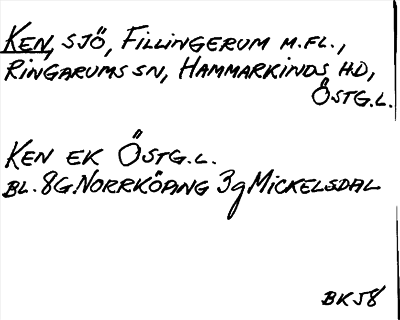 KEN, SJÖ, FILLINGERUM M.FL.,
RINGARUMS SN, HAMMARKINDS HD,
ÖSTG.L.
KEN EK ÖSTG.L.
BL. 8G NORRKÖPING 3g MICKELSDAL
BK58